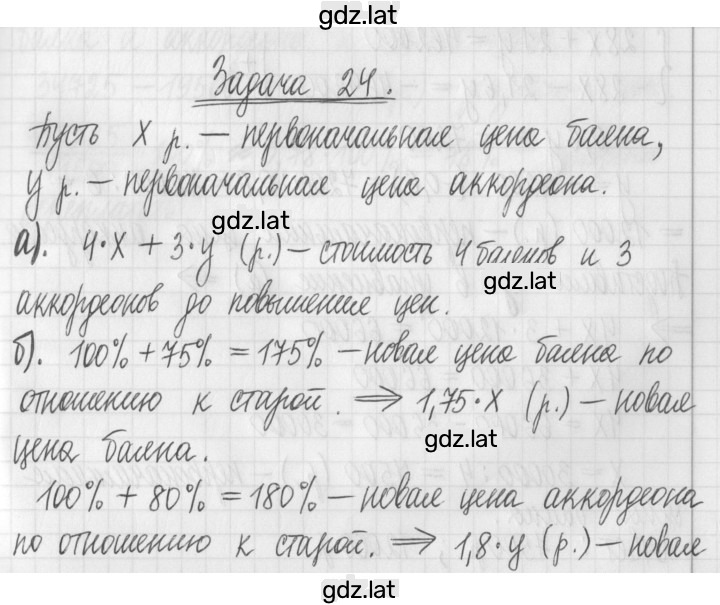 gdz.lat
Задача 24.
Пусть x р. – первоначальная цена баяна,
y р. – первоначальная цена аккордеона.
gdz.lat
а). 4·x + 3·y (р.) – стоимость 4 баянов и 3
gdz.lat
аккордеонов до повышения цен.
б). 100% + 75% = 175% – новая цена баяна по
отношению к старой. ⇒ 1,75·x (р.) – новая
gdz.lat
цена баяна.
100% + 80% = 180% – новая цена аккордеона
по отношению к старой. ⇒ 1,8·y (р.) – новая
gdz.lat